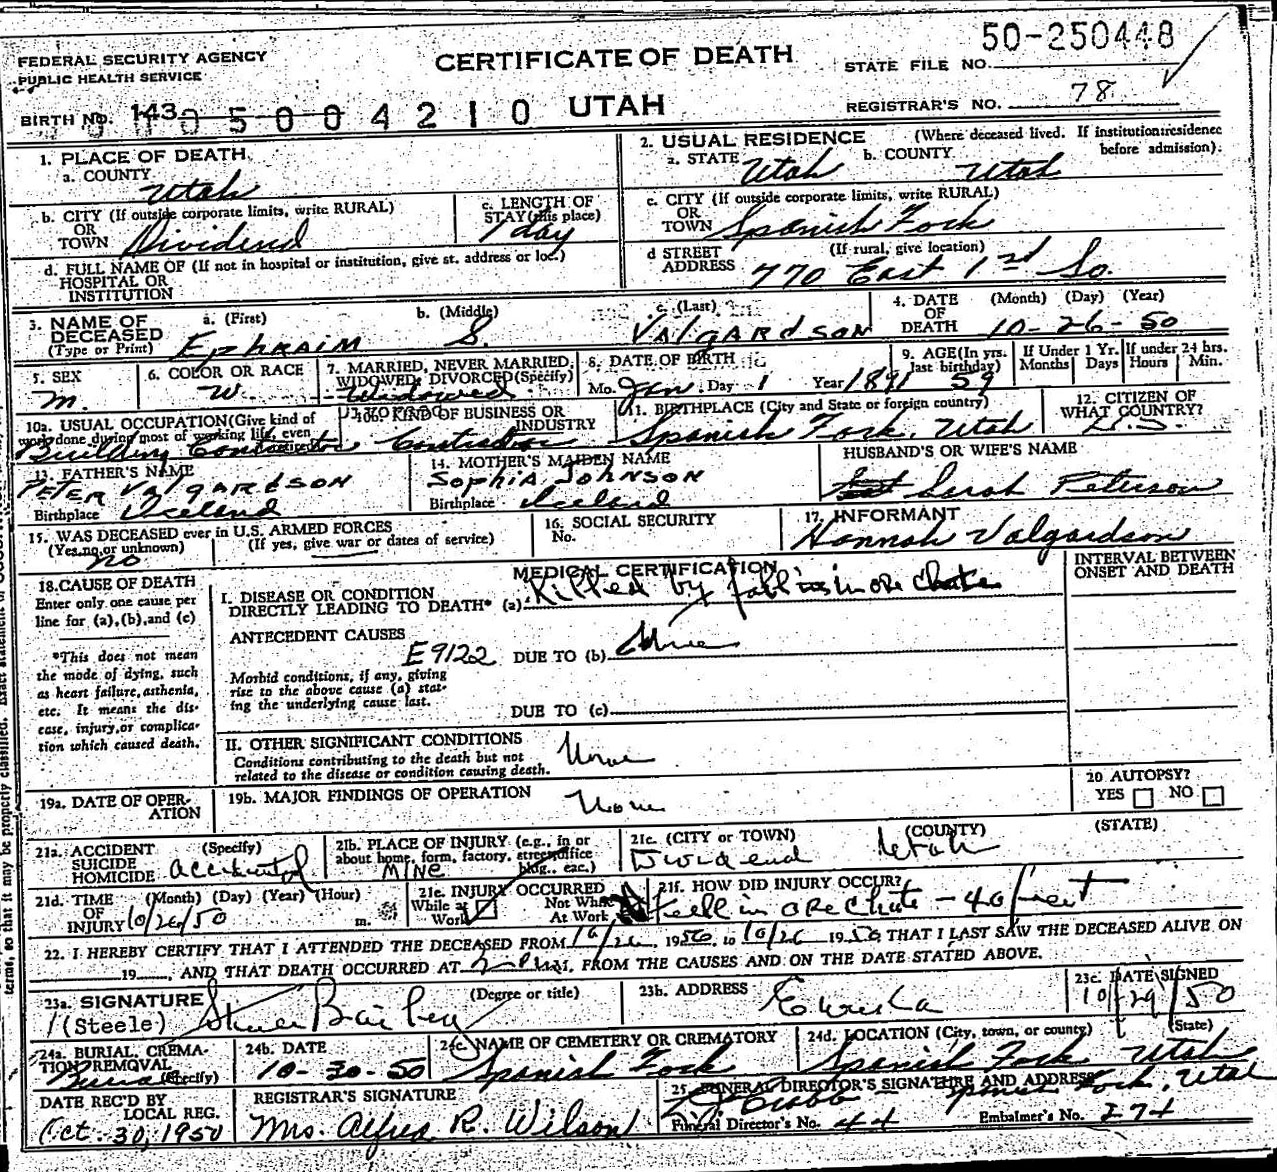 50-250448
FEDERAL SECURITY AGENCY
PUBLIC HEALTH SERVICE
CERTIFICATE OF DEATH
STATE FILE NO.
BIRTH NO. 143
0 5 0 0 4 2 1 0
UTAH
REGISTRAR'S NO. 78
1. PLACE OF DEATH
a. COUNTY
Utah
2. USUAL RESIDENCE (Where deceased lived. If institution: residence before admission).
a. STATE Utah b. COUNTY Utah
b. CITY (If outside corporate limits, write RURAL)
OR
TOWN Dividend
c. LENGTH OF
STAY (this place)
1 day
c. CITY (If outside corporate limits, write RURAL)
OR
TOWN Spanish Fork
d. FULL NAME OF (If not in hospital or institution, give st. address or loc.)
HOSPITAL OR
INSTITUTION
d STREET (If rural, give location)
ADDRESS 770 East 1st So.
3. NAME OF
DECEASED
(Type or Print)
a. (First) b. (Middle) c. (Last)
EPHRAIM S. VALGARDSON
4. DATE (Month) (Day) (Year)
OF
DEATH 10-26-50
5. SEX
M.
6. COLOR OR RACE
W.
7. MARRIED, NEVER MARRIED,
WIDOWED, DIVORCED (Specify)
Widowed
8. DATE OF BIRTH
Mo. Jan. Day 1 Year 1891
9. AGE (In yrs.
last birthday)
59
If Under 1 Yr.
Months Days
If under 24 hrs.
Hours Min.
10a. USUAL OCCUPATION (Give kind of
work done during most of working life, even
Building Contractor
10b. KIND OF BUSINESS OR
INDUSTRY
Contractor
11. BIRTHPLACE (City and State or foreign country)
Spanish Fork, Utah
12. CITIZEN OF
WHAT COUNTRY?
U.S.
13. FATHER'S NAME
PETER VALGARDSON
Birthplace Iceland
14. MOTHER'S MAIDEN NAME
SOPHIA JOHNSON
Birthplace Iceland
HUSBAND'S OR WIFE'S NAME
Sarah Peterson
15. WAS DECEASED ever in U.S. ARMED FORCES
(Yes, no, or unknown) (If yes, give war or dates of service)
no
16. SOCIAL SECURITY
No.
17. INFORMANT
Hannah Valgardson
MEDICAL CERTIFICATION
INTERVAL BETWEEN
ONSET AND DEATH
18. CAUSE OF DEATH
Enter only one cause per
line for (a), (b), and (c)
*This does not mean
the mode of dying, such
as heart failure, asthenia,
etc. It means the dis-
ease, injury, or complica-
tion which caused death.
I. DISEASE OR CONDITION
DIRECTLY LEADING TO DEATH* (a) Killed by falling in ore chute
ANTECEDENT CAUSES
E9122 DUE TO (b)
Morbid conditions, if any, giving
rise to the above cause (a) stat-
ing the underlying cause last.
DUE TO (c)
II. OTHER SIGNIFICANT CONDITIONS
Conditions contributing to the death but not
related to the disease or condition causing death.
None
19a. DATE OF OPER-
ATION
19b. MAJOR FINDINGS OF OPERATION
None
20 AUTOPSY?
YES NO
21a. ACCIDENT (Specify)
SUICIDE
HOMICIDE Accidental
21b. PLACE OF INJURY (e.g., in or
about home, farm, factory, street, office
bldg., etc.)
MINE
21c. (CITY or TOWN) (COUNTY) (STATE)
Dividend Utah
21d. TIME (Month) (Day) (Year) (Hour)
OF
INJURY 10/26/50 m.
21e. INJURY OCCURRED
While at Work Not While At Work
21f. HOW DID INJURY OCCUR?
Fell in ore chute - 40 feet
22. I HEREBY CERTIFY THAT I ATTENDED THE DECEASED FROM 10/26, 1950, to 10/26 1950, THAT I LAST SAW THE DECEASED ALIVE ON
19, AND THAT DEATH OCCURRED AT M, FROM THE CAUSES AND ON THE DATE STATED ABOVE.
23a. SIGNATURE (Degree or title)
(Steele) Steele Bailey
23b. ADDRESS
Eureka
23c. DATE SIGNED
10/29/50
24a. BURIAL, CREMA-
TION REMOVAL
(Specify)
Burial
24b. DATE
10-30-50
24c. NAME OF CEMETERY OR CREMATORY
Spanish Fork
24d. LOCATION (City, town, or county) (State)
Spanish Fork Utah
DATE REC'D BY
LOCAL REG.
Oct. 30, 1950
REGISTRAR'S SIGNATURE
Mrs. Alfred R. Wilson
25. FUNERAL DIRECTOR'S SIGNATURE AND ADDRESS
Spanish Fork, Utah
Funeral Director's No. 44 Embalmer's No. 274